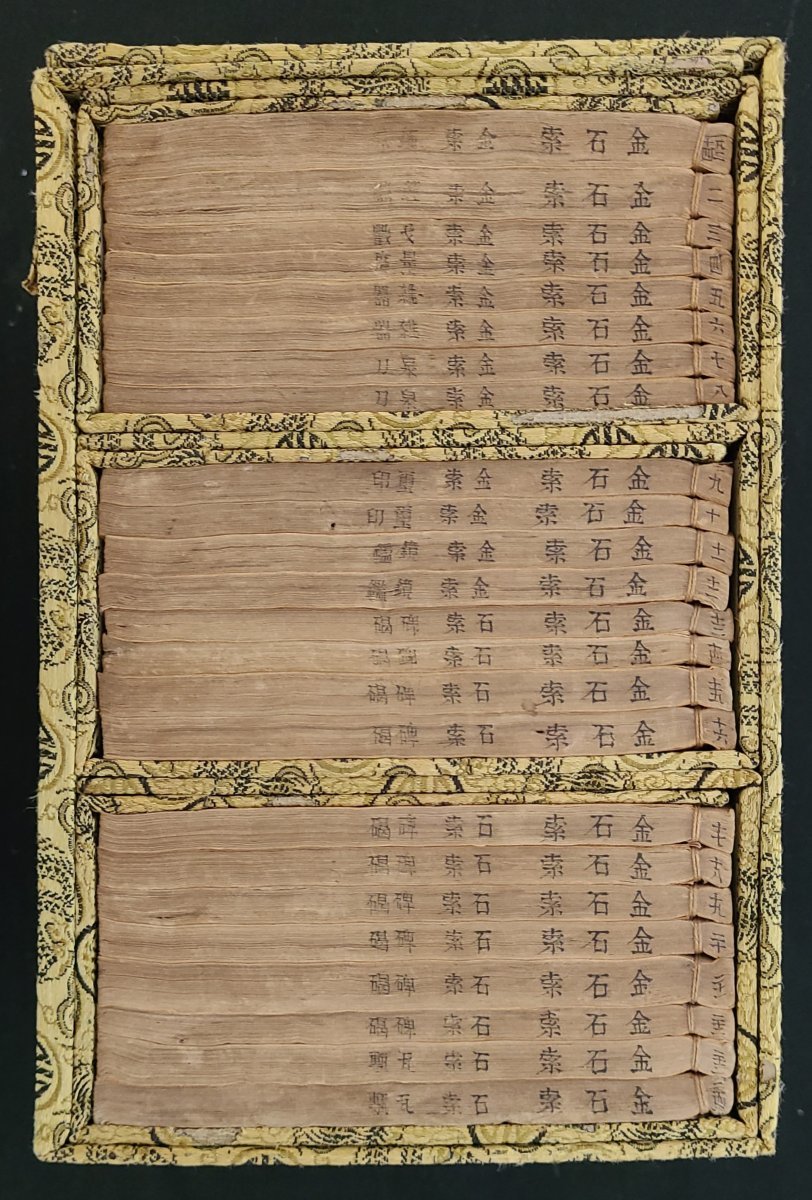 金石索 金索
二 金石索 金索
三 金石索 金索 戈
四 金石索 金索
五 金石索 金索 雜器
六 金石索 金索 雜器
七 金石索 金索 泉刀
八 金石索 金索 泉刀
九 金石索 金索 璽印
十 金石索 金索 璽印
十一 金石索 金索 鏡鑑
十二 金石索 金索 鏡鑑
十三 金石索 石索 碑碣
十四 金石索 石索 碑碣
十五 金石索 石索 碑碣
十六 金石索 石索 碑碣
十七 金石索 石索 碑碣
十八 金石索 石索 碑碣
十九 金石索 石索 碑碣
二十 金石索 石索 碑碣
金石索 石索 碑碣
金石索 石索 碑碣
金石索 石索 瓦甎
金石索 石索 瓦甎